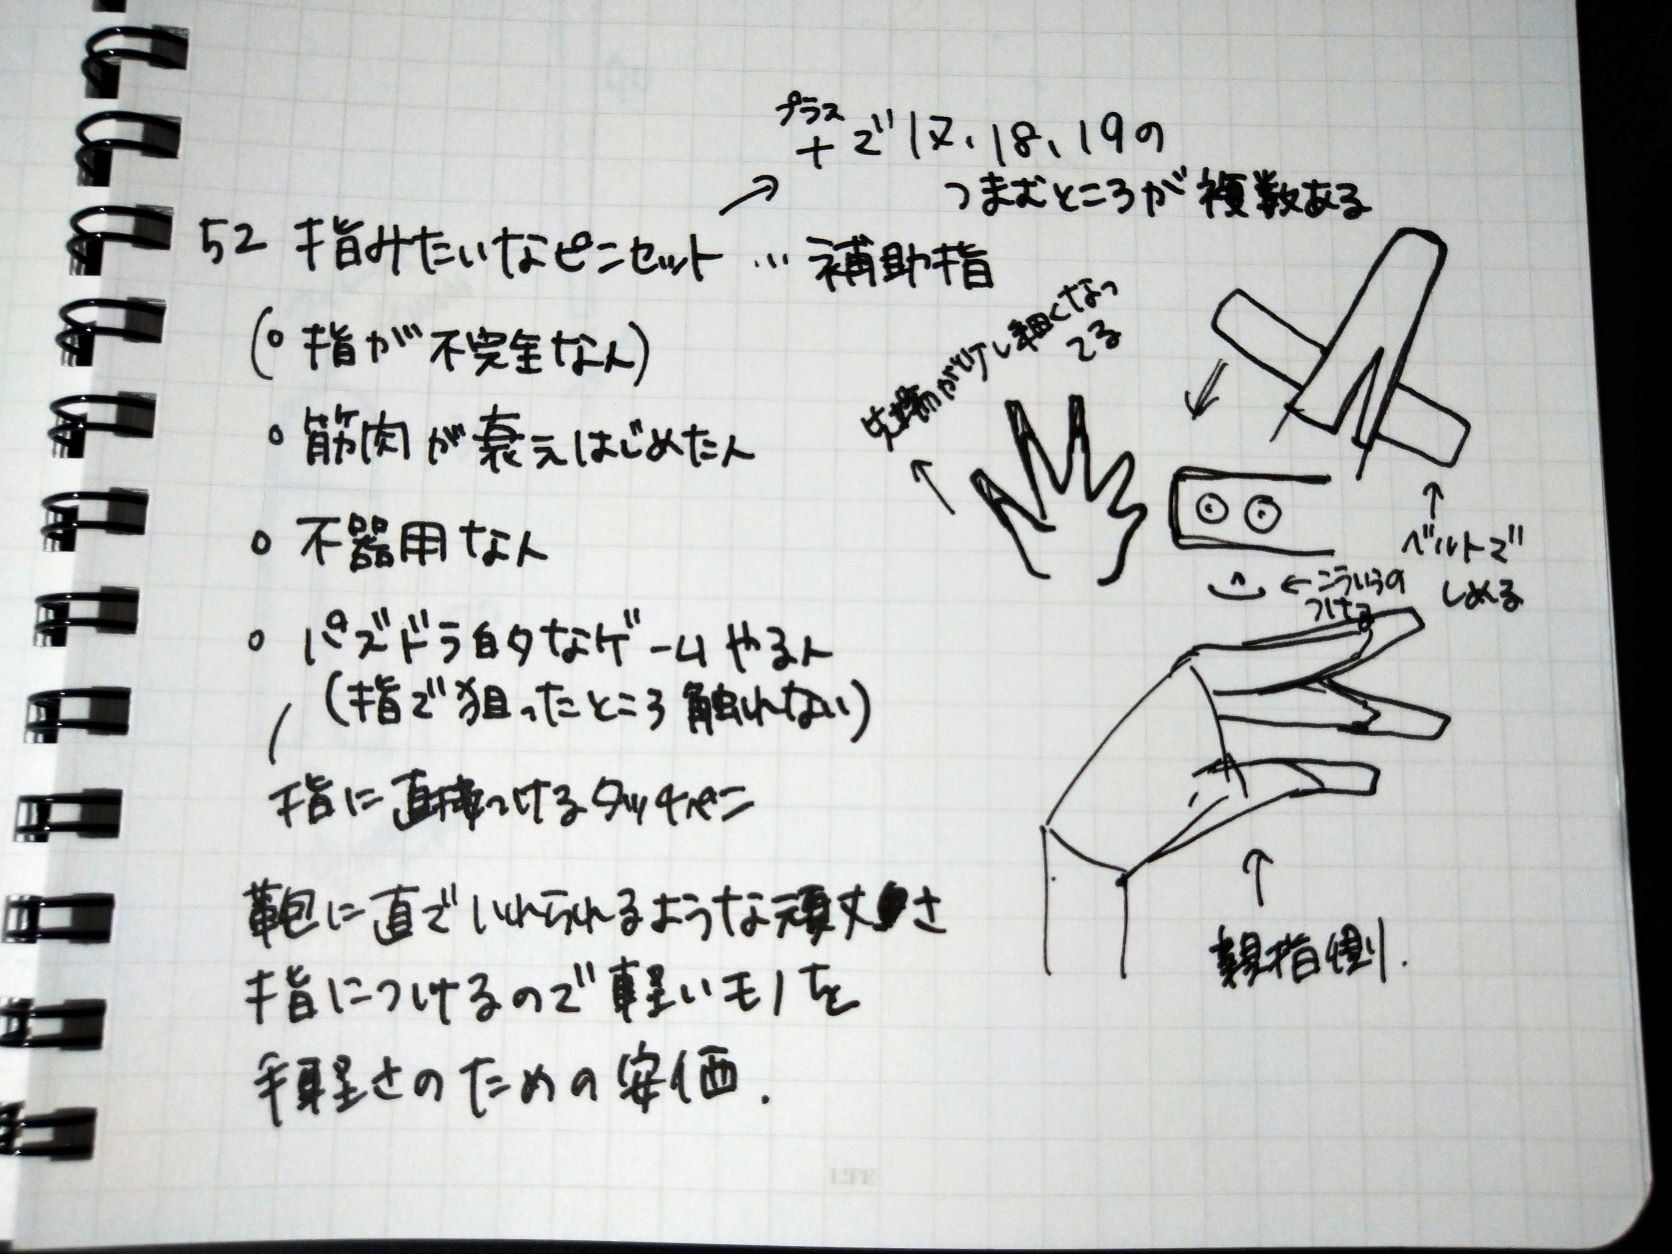 52 指みたいなピンセット…補助指
→ プラス
+で17、18、19の
つまむところが複数ある
(○指が不完全な人)
○筋肉が衰えはじめた人
○不器用な人
○パズドラ的なゲームやる人
(指で狙ったところ触れない)
指に直接つけるタッチペン
鞄に直でいれられるような頑丈さ
指につけるので軽いモノを
手軽さのための安価.
先端が少し細くなっ
てる
←こういうの
つける
ベルトで
しめる
親指側.